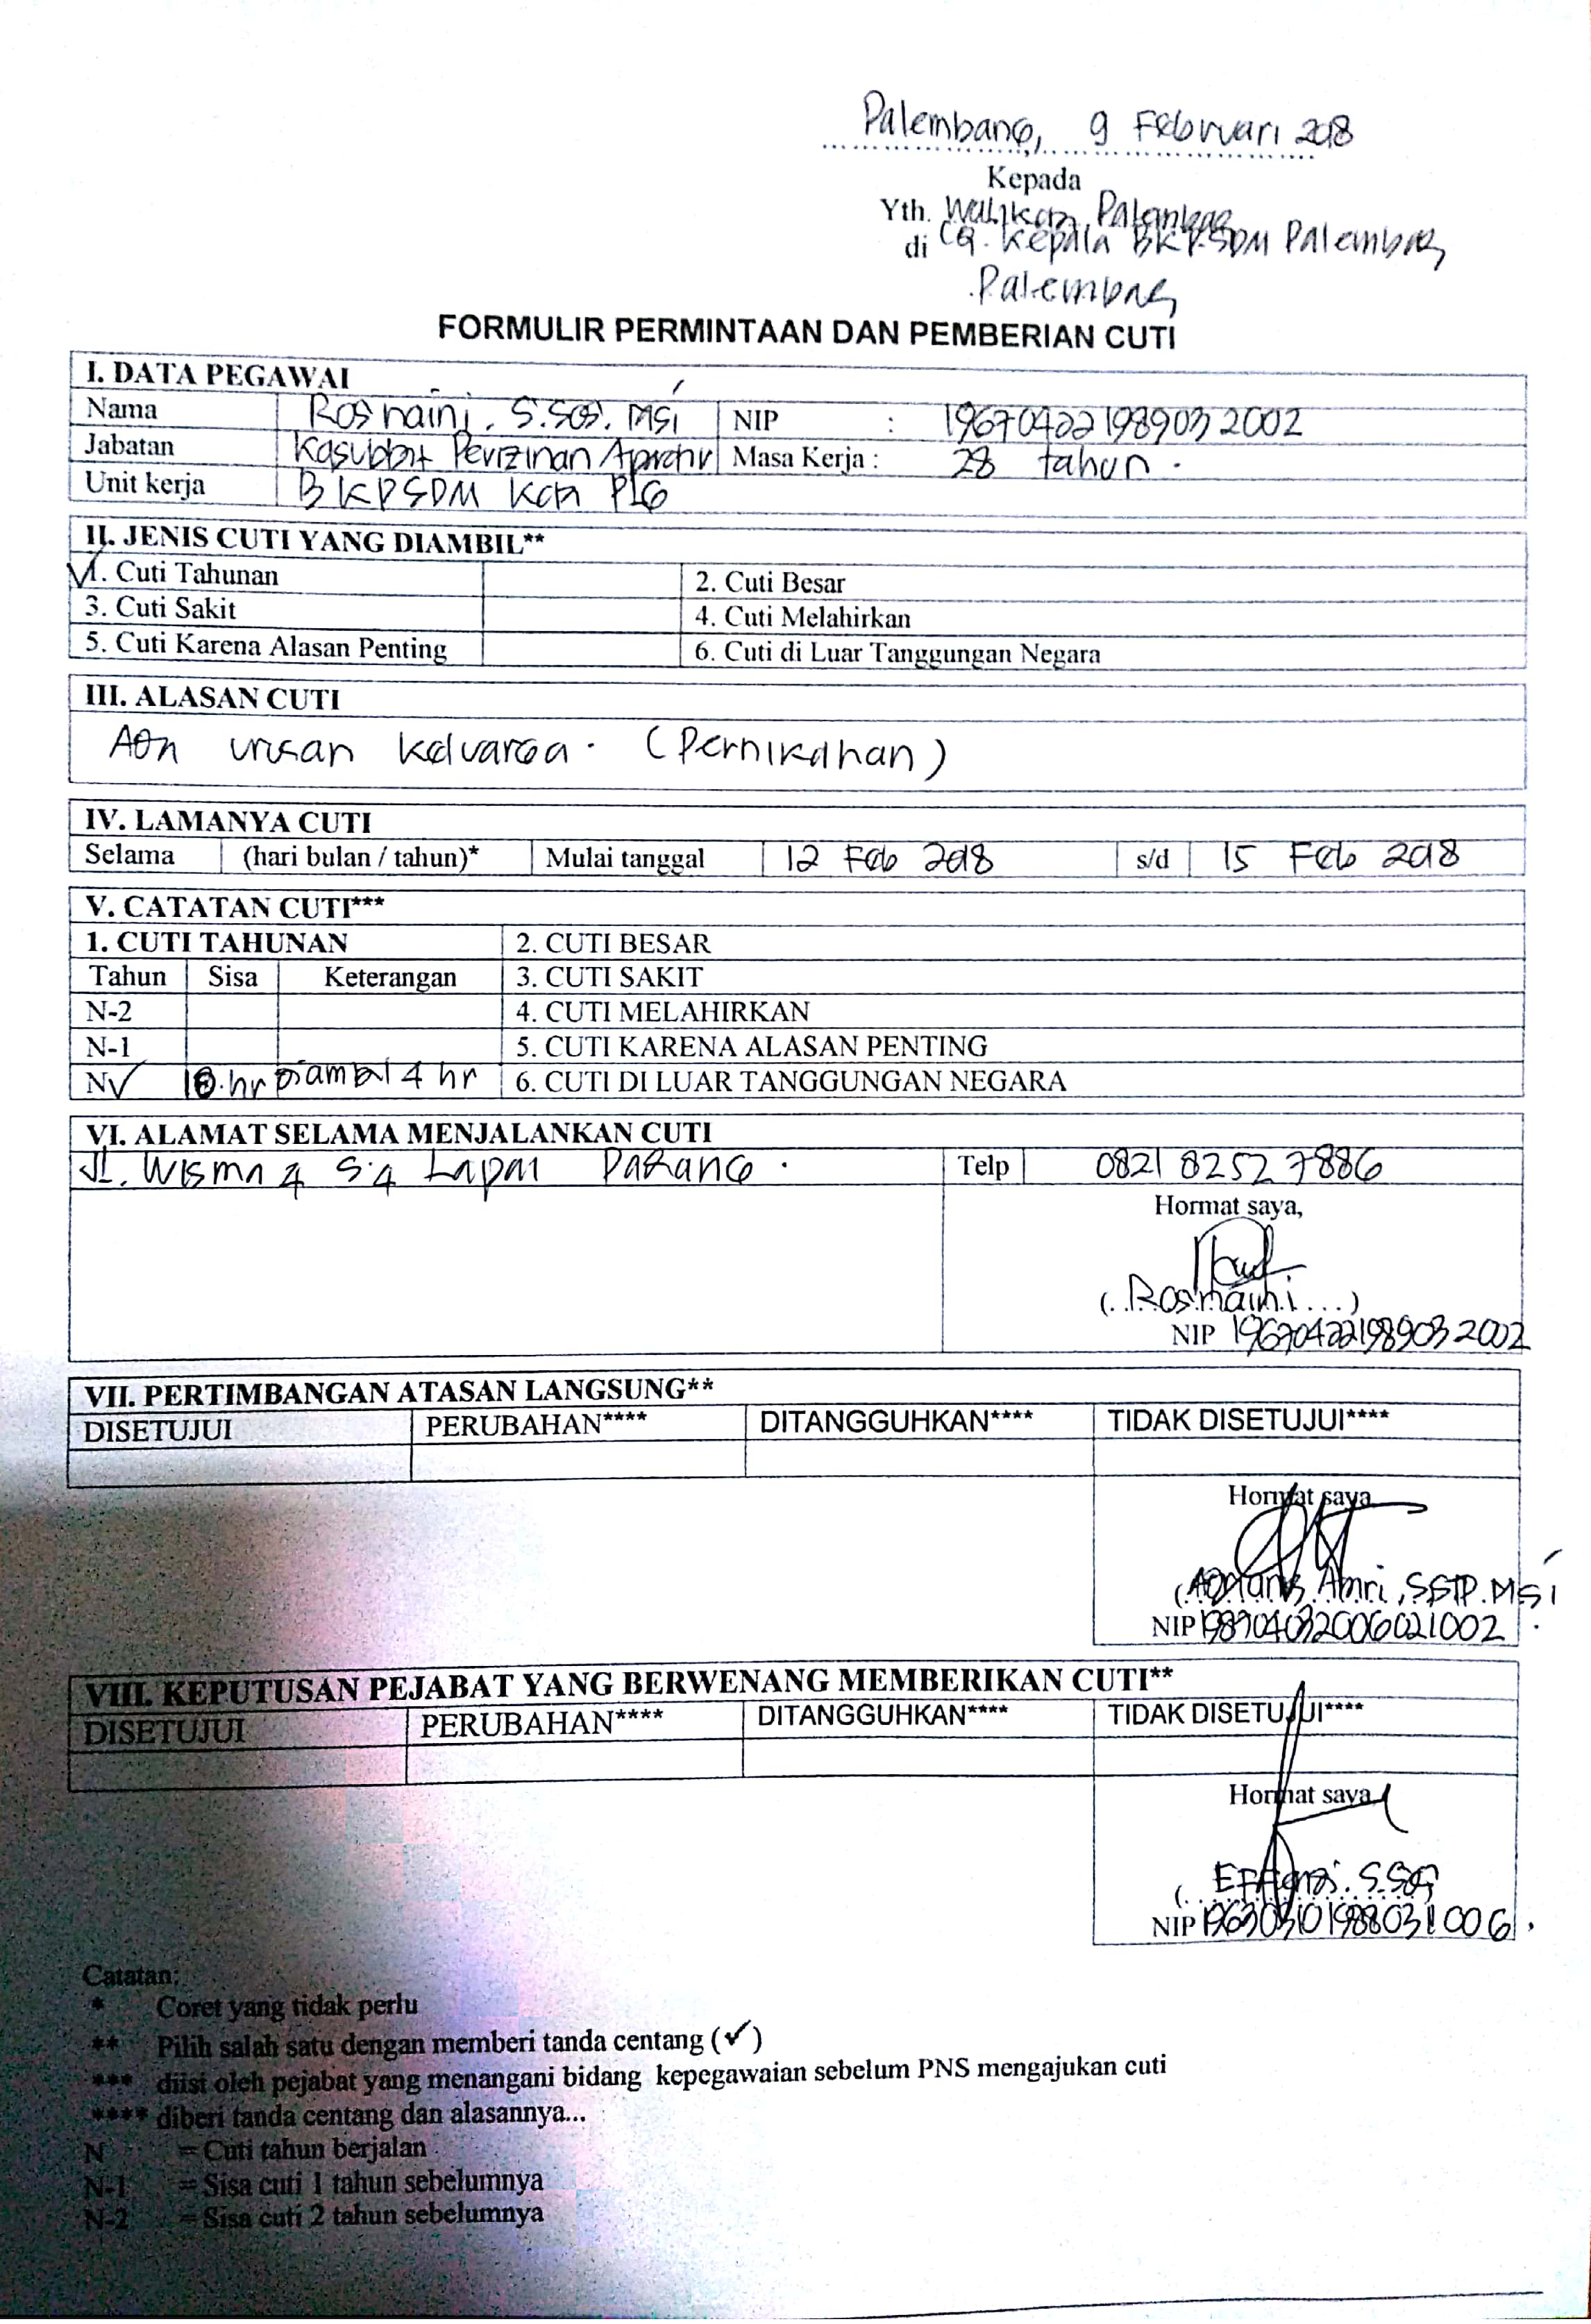 Palembang, 9 Februari 2018
Kepada
Yth. Walikota Palembang
di Cq. Kepala BKPSDM Palembang
Palembang
FORMULIR PERMINTAAN DAN PEMBERIAN CUTI
I. DATA PEGAWAI
Nama Rosnaini, S.Sos. MSi NIP : 196704221989032002
Jabatan Kasubbit Perizinan Masa Kerja : 28 tahun.
Unit kerja BKPSDM Kota PLG
II. JENIS CUTI YANG DIAMBIL**
✓1. Cuti Tahunan 2. Cuti Besar
3. Cuti Sakit 4. Cuti Melahirkan
5. Cuti Karena Alasan Penting 6. Cuti di Luar Tanggungan Negara
III. ALASAN CUTI
Ada urusan keluarga. (Pernikahan)
IV. LAMANYA CUTI
Selama (hari bulan / tahun)* Mulai tanggal 12 Feb 2018 s/d 15 Feb 2018
V. CATATAN CUTI***
1. CUTI TAHUNAN 2. CUTI BESAR
Tahun Sisa Keterangan 3. CUTI SAKIT
N-2 4. CUTI MELAHIRKAN
N-1 5. CUTI KARENA ALASAN PENTING
N✓ hr Diambil 4 hr 6. CUTI DI LUAR TANGGUNGAN NEGARA
VI. ALAMAT SELAMA MENJALANKAN CUTI
JL. Wisma Telp 0821 8252 7886
Hormat saya,
(..Rosnaini...)
NIP 196704221989032002
VII. PERTIMBANGAN ATASAN LANGSUNG**
DISETUJUI PERUBAHAN**** DITANGGUHKAN**** TIDAK DISETUJUI****
Hormat saya
Amri, SSTP. MSi
NIP 198704032006021002
VIII. KEPUTUSAN PEJABAT YANG BERWENANG MEMBERIKAN CUTI**
DISETUJUI PERUBAHAN**** DITANGGUHKAN**** TIDAK DISETUJUI****
Hormat saya
S.Sos
NIP 196303101988031006
Catatan:
* Coret yang tidak perlu
** Pilih salah satu dengan memberi tanda centang (✓)
*** diisi oleh pejabat yang menangani bidang kepegawaian sebelum PNS mengajukan cuti
**** diberi tanda centang dan alasannya...
N = Cuti tahun berjalan
N-1 = Sisa cuti 1 tahun sebelumnya
N-2 = Sisa cuti 2 tahun sebelumnya